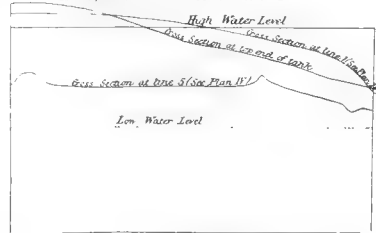 High Water Level
Cross Section at line 1 (See Plan
Cross Section at top end of tank
Cross Section at line 5 (See Plan IV)
Low Water Level